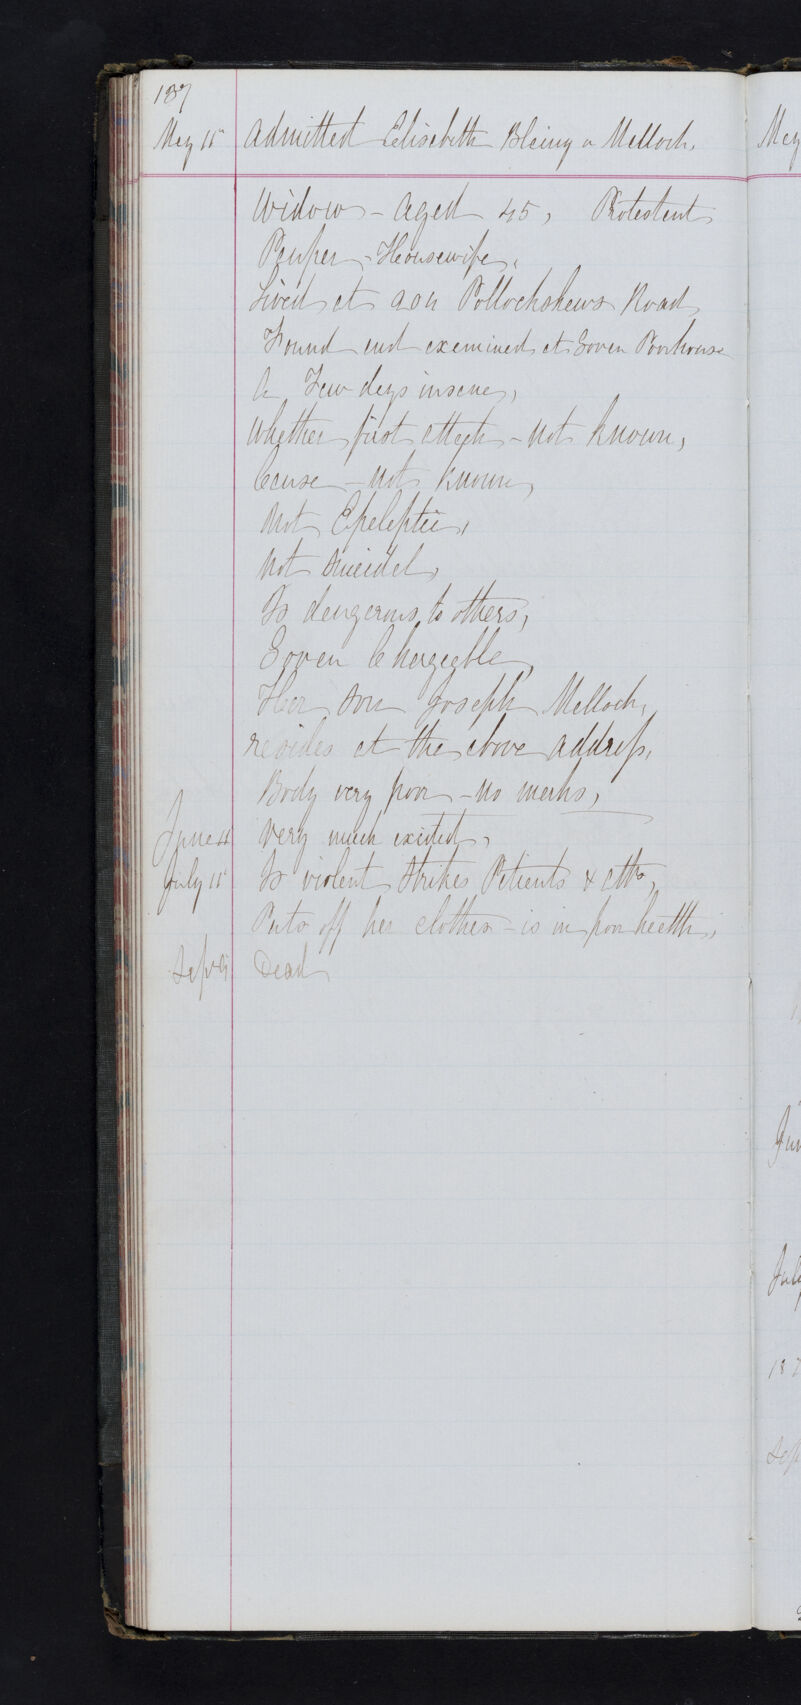 187
May 15 Admitted Elisabeth Blainy or Melloch.
Widow - Aged 45, Protestant
Pauper - Housewife,
Lived at 204 Pollockshaws Road
Found and examined at Govan Poorhouse
A Few days insane,
Whether first attack - not known,
Cause - not known,
Not Epeleptic,
Not Suicidal,
Is dangerous to others,
Govan Chargeable,
Her Son Joseph Melloch,
resides at the above address,
Body very poor - no marks,
June Very much exited,
July 15 Is violent Strikes Patients &
Puts off her clothes - is in poor health,
Sept Dead
May
Jun
July
187
Sep